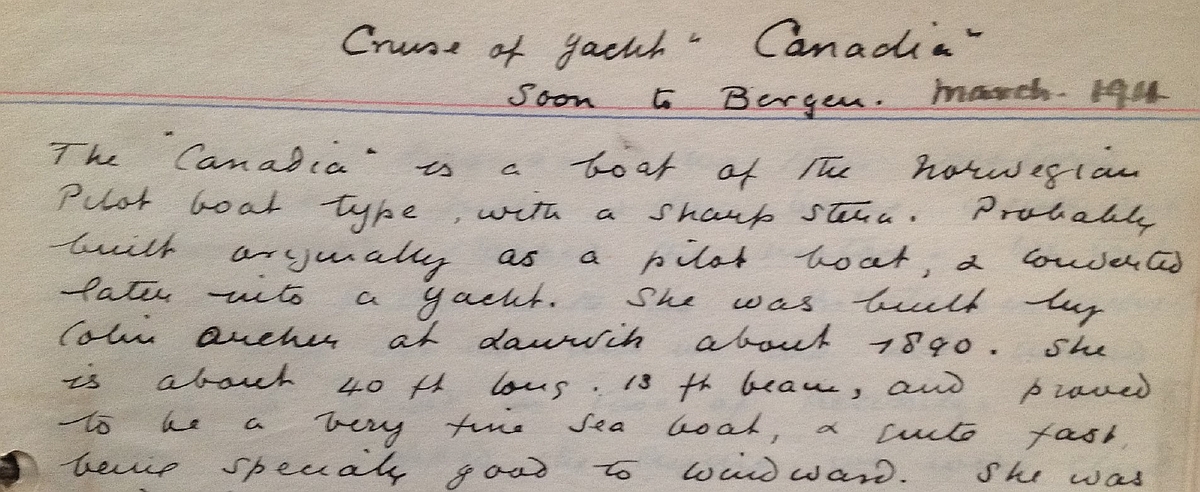 Cruise of Yacht "Canadia"
Soon to Bergen. March. 1911
The "Canadia" is a boat of the Norwegian
Pilot boat type, with a sharp stern. Probably
built originally as a pilot boat, & converted
later into a yacht. She was built by
Colin Archer at Laurvik about 1890. She
is about 40 ft long. 13 ft beam, and proved
to be a very fine sea boat, & quite fast
being specialy good to windward. She was